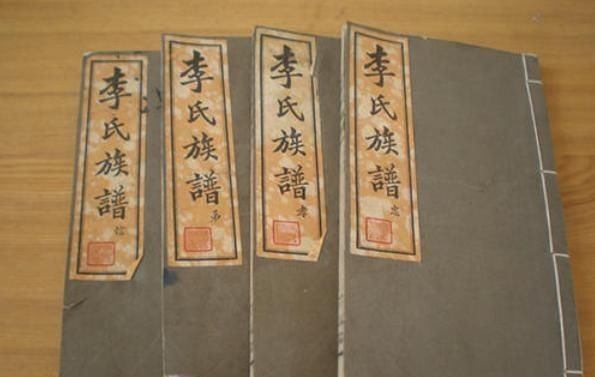 李氏族譜 忠
李氏族譜 孝
李氏族譜 弟
李氏族譜 信